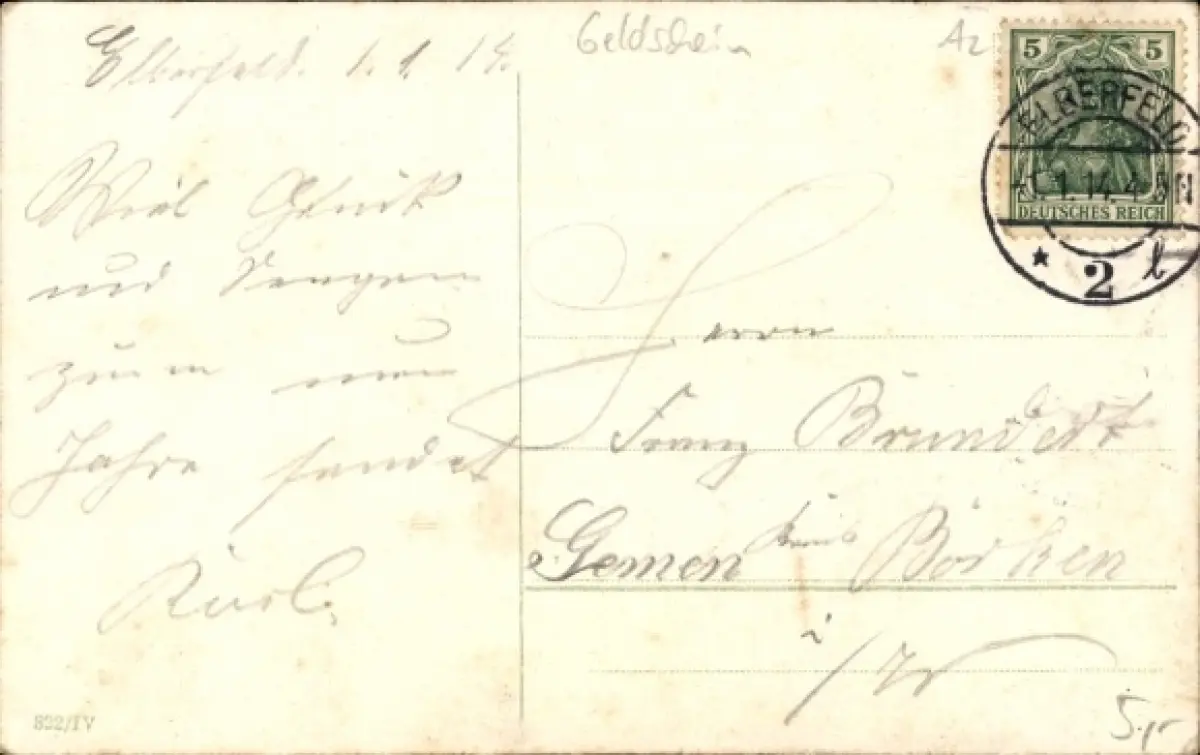 Elberfeld. 1.1.14.
Geldschein
Az
5 5
ELBERFELD
1.14.4-5N
DEUTSCHES REICH
* 2 b
Viel Glück
und Seegen
zum neuen
Jahre sendet
Karl.
Herrn
Franz
Gemen Kreis Borken
i/W
822/IV
5,-